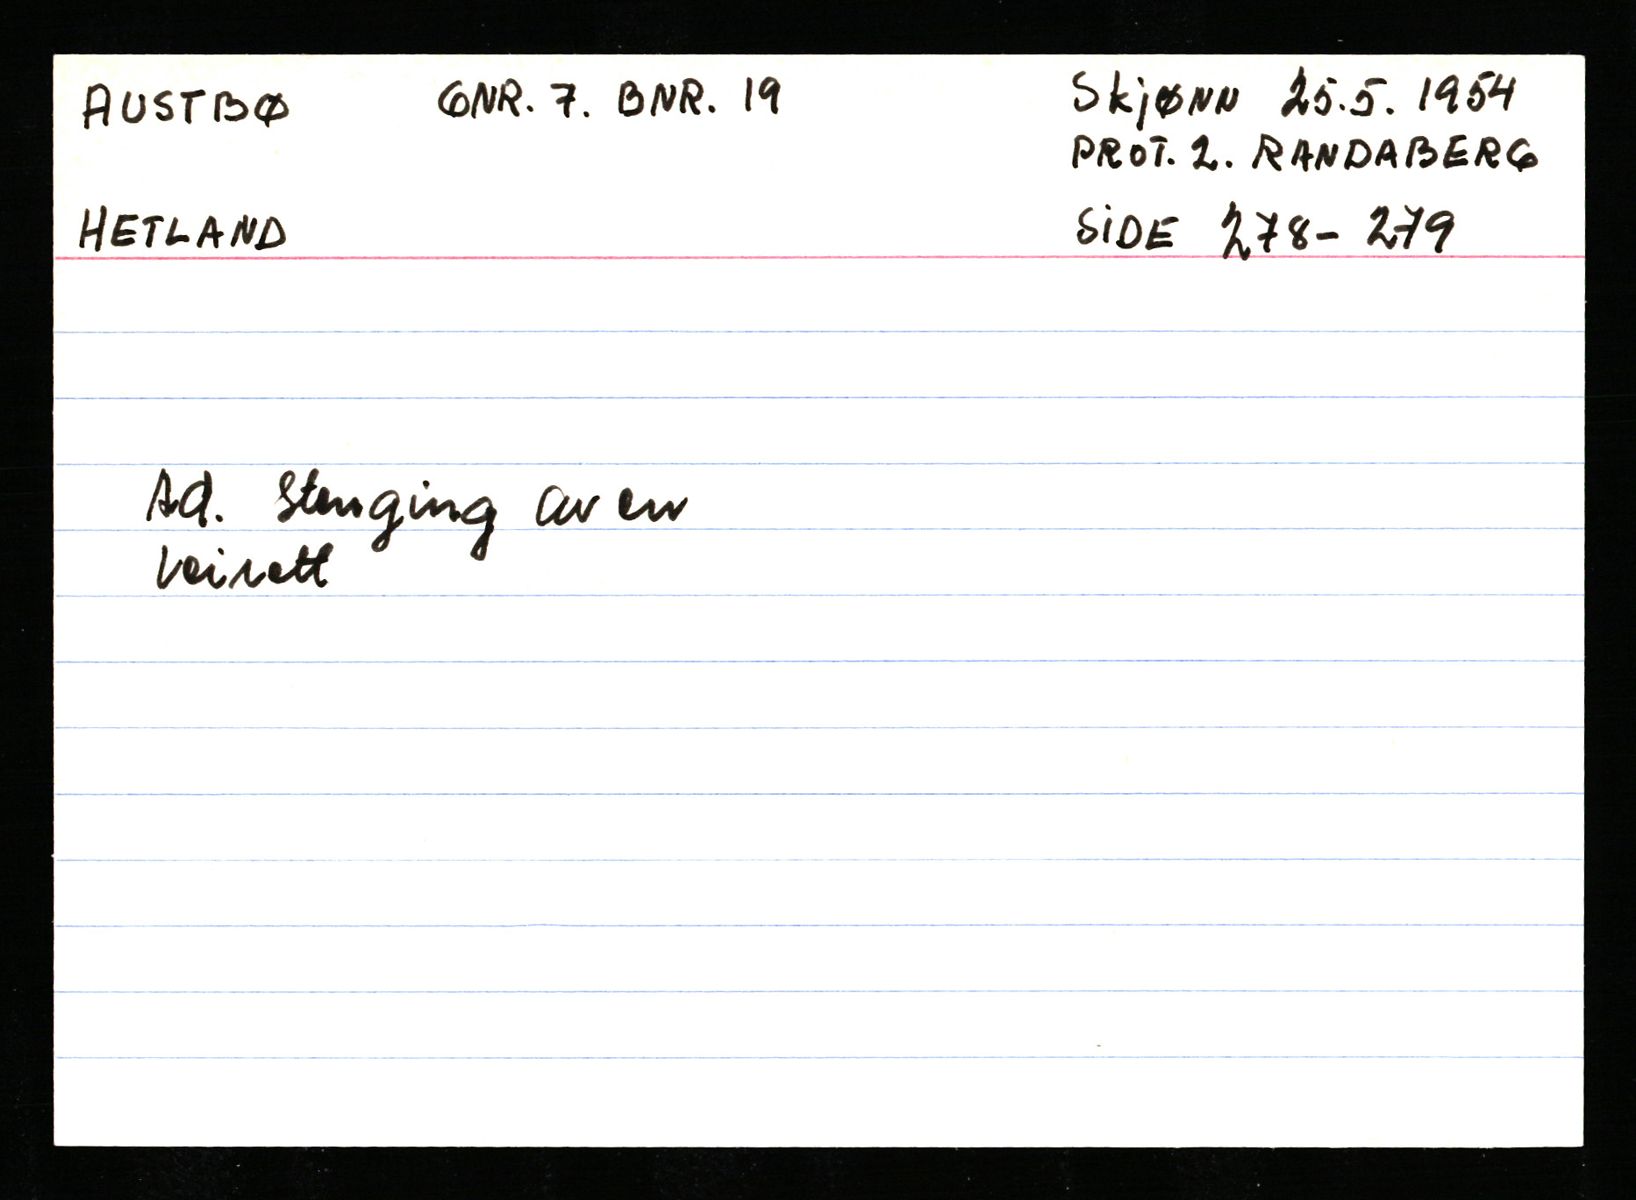 AUSTBØ GNR. 7. BNR. 19 Skjønn 25.5. 1954
PROT. 2. RANDABERG
HETLAND SIDE 278-279
Ad. Stenging av en
veirett